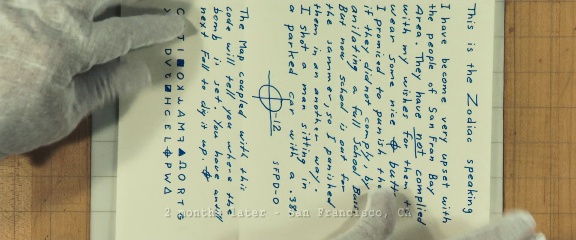 This is the Zodiac speaking
I have become very upset with
the people of San Fran Bay
Area. They have not complied
with my wishes for them
wear some nice ⌖
I promiced to punish
if they did not comply, by
anilating a full School Buss
But now school is out for
the summer, so I punished
them in an another way.
I shot a man sitting in
a parked car with a .38
⌖-12 SFPD-0
The Map coupled with this
code will tell you where the
bomb is set. You have until
next Fall to dig it up. ⌖
2 months later - San Francisco,